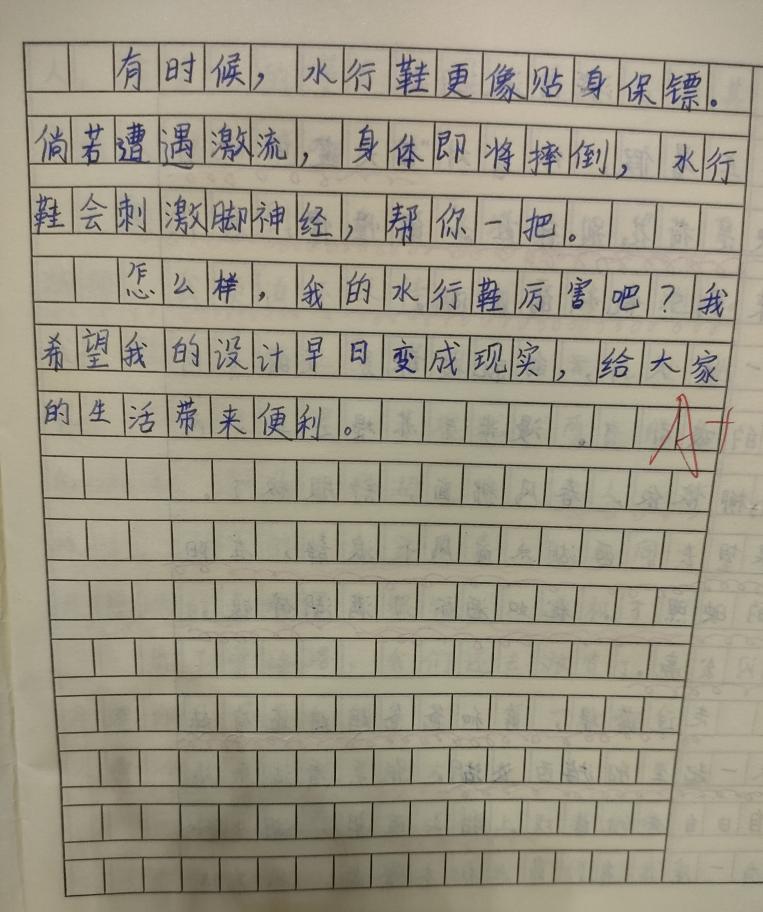 有时候，水行鞋更像贴身保镖。
倘若遭遇激流，身体即将摔倒，水行
鞋会刺激脚神经，帮你一把。
怎么样，我的水行鞋厉害吧？我
希望我的设计早日变成现实，给大家
的生活带来便利。
A+